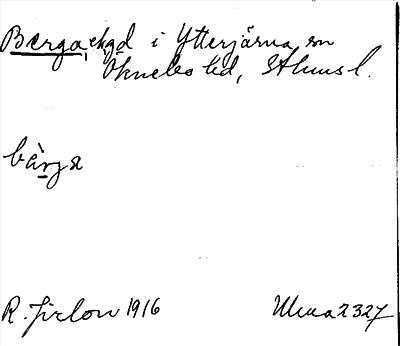 Berga, ägd i Ytterjärna sn
Öknebo hd, Sthms l.
bàrja
R. Jirlow 1916
Ulma 2327